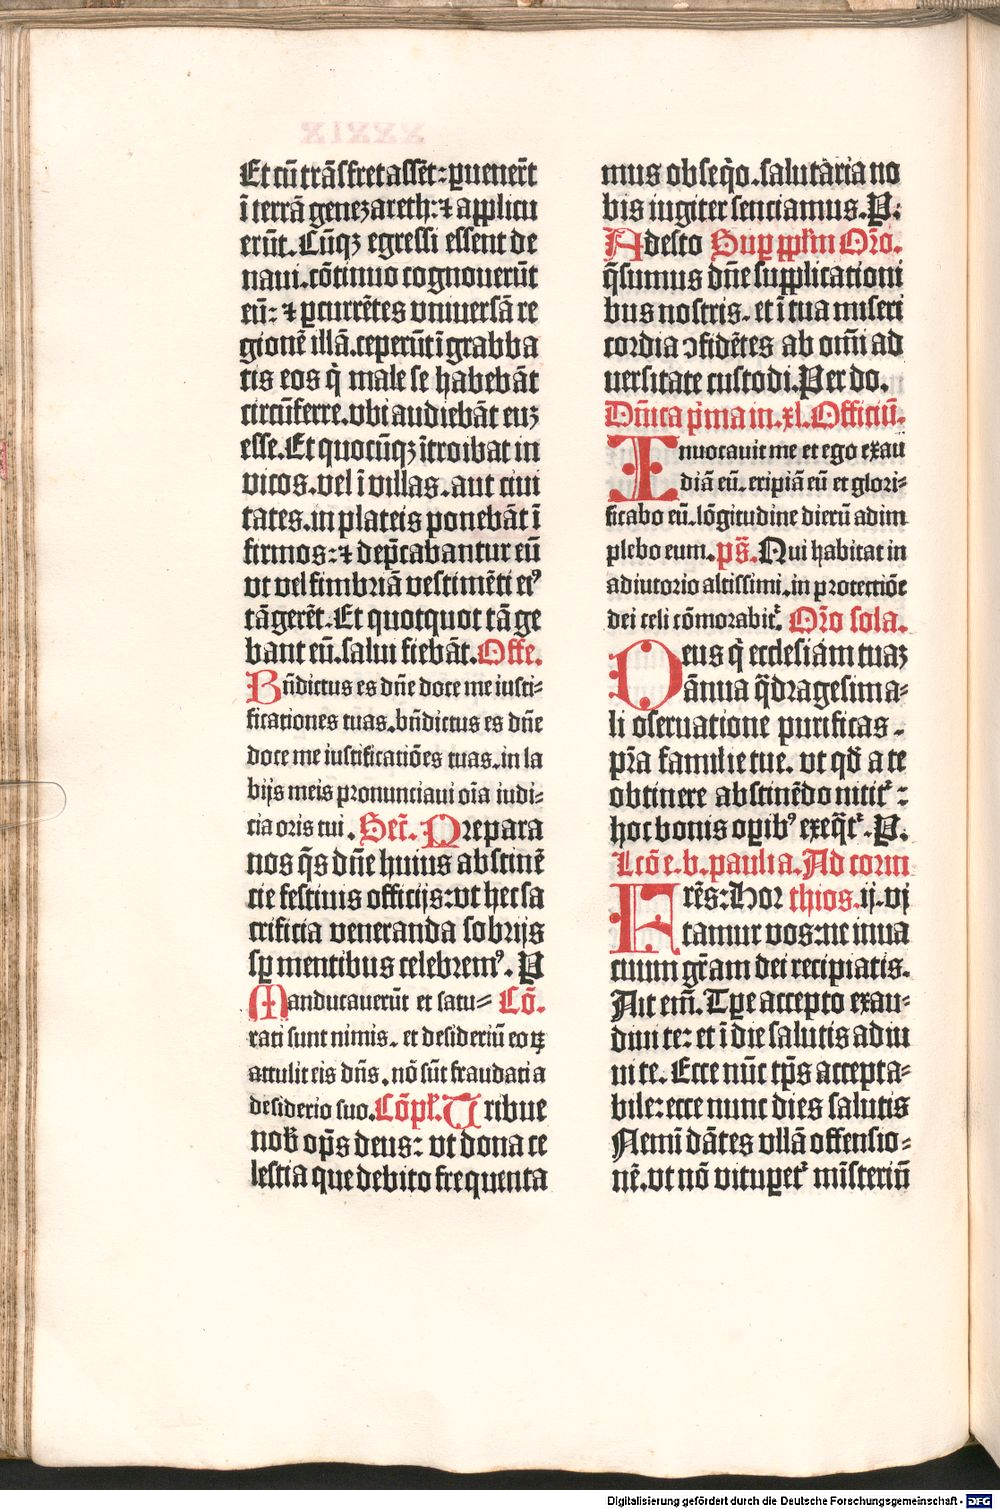 Et cũ trãsfretassẽt: ꝑueneꝛ̃t
ĩ terrã genezareth: ⁊ applicu
erũt. Cũqꝫ egressi essent de
naui. cõtinuo cognouerũt
eũ: ⁊ ꝑcurrẽtes vniuersã re
gionẽ illã. ceperũt ĩ grabba
tis eos q̇ male se habebãt
circũferre. vbi audiebãt euꝫ
esse. Et quocũqꝫ ĩtroibat in
vicos. vel ĩ villas. aut ciui
tates. in plateis ponebãt ĩ
firmos: ⁊ dep̃cabantur eũ
vt vel fimbriã vestimẽti eiꝰ
tãgerẽt. Et quotquot tãge
bant eũ. salui fiebãt. Offe.
Bñdictus es dñe doce me iusti-
ficationes tuas. bñdictus es dñe
doce me iustificatiões tuas. in la
bijs meis pronunciaui oĩa iudi-
cia oris tui. Secr̃. Prepara
nos q̃s dñe huius abstinẽ
cie festiuis officijs: vt hec sa
crificia veneranda sobrijs
sꝑ mentibus celebremꝰ. P
Manducauerũt et satu- Cõ.
rati sunt nimis. et desideriũ eoꝝ
attulit eis dñs. nõ sũt fraudati a
desiderio suo. Cõpł. Tribue
nob̃ op̃s deus: vt dona ce
lestia que debito frequenta
mus obseq̇o. salutaria no
bis iugiter senciamus. P.
Adesto Suꝑ ppłm Oꝛ̃o.
q̃sumus dñe supplicationi
bus nostris. et ĩ tua miseri
cordia ꝯfidẽtes ab om̃i ad
uersitate custodi. Per do.
Dñica p̃ma in. xl. Officiũ.
Inuocauit me et ego exau
diã eũ. eripiã eũ et glori-
ficabo eũ. lõgitudine dierũ adim
plebo eum. ps̃. Qui habitat in
adiutorio altissimi. in protectiõe
dei celi cõmorabit᷑. Oꝛ̃o sola.
Deus q̇ ecclesiam tuaꝫ
ãnua q̃dragesima-
li oseruatione purificas.
pr̃a familie tue. vt qd̃ a te
obtinere abstinẽdo nitit᷑:
hoc bonis opibꝰ exeq̃t᷑. P.
Lcõ e. b. pauli a. Ad corin
Fr̃es: Hor thios. ij. vj
tamur vos: ne inua
cuum gr̃am dei recipiatis.
Ait em̃. Tꝑe accepto exau-
diui te: et ĩ die salutis adiu
ui te. Ecce nũc tp̃s accepta-
bile: ecce nunc dies salutis
Nemĩ dãtes vllã offensio-
nẽ. vt nõ vituꝑet᷑ mĩsteriũ
Digitalisierung gefördert durch die Deutsche Forschungsgemeinschaft - DFG